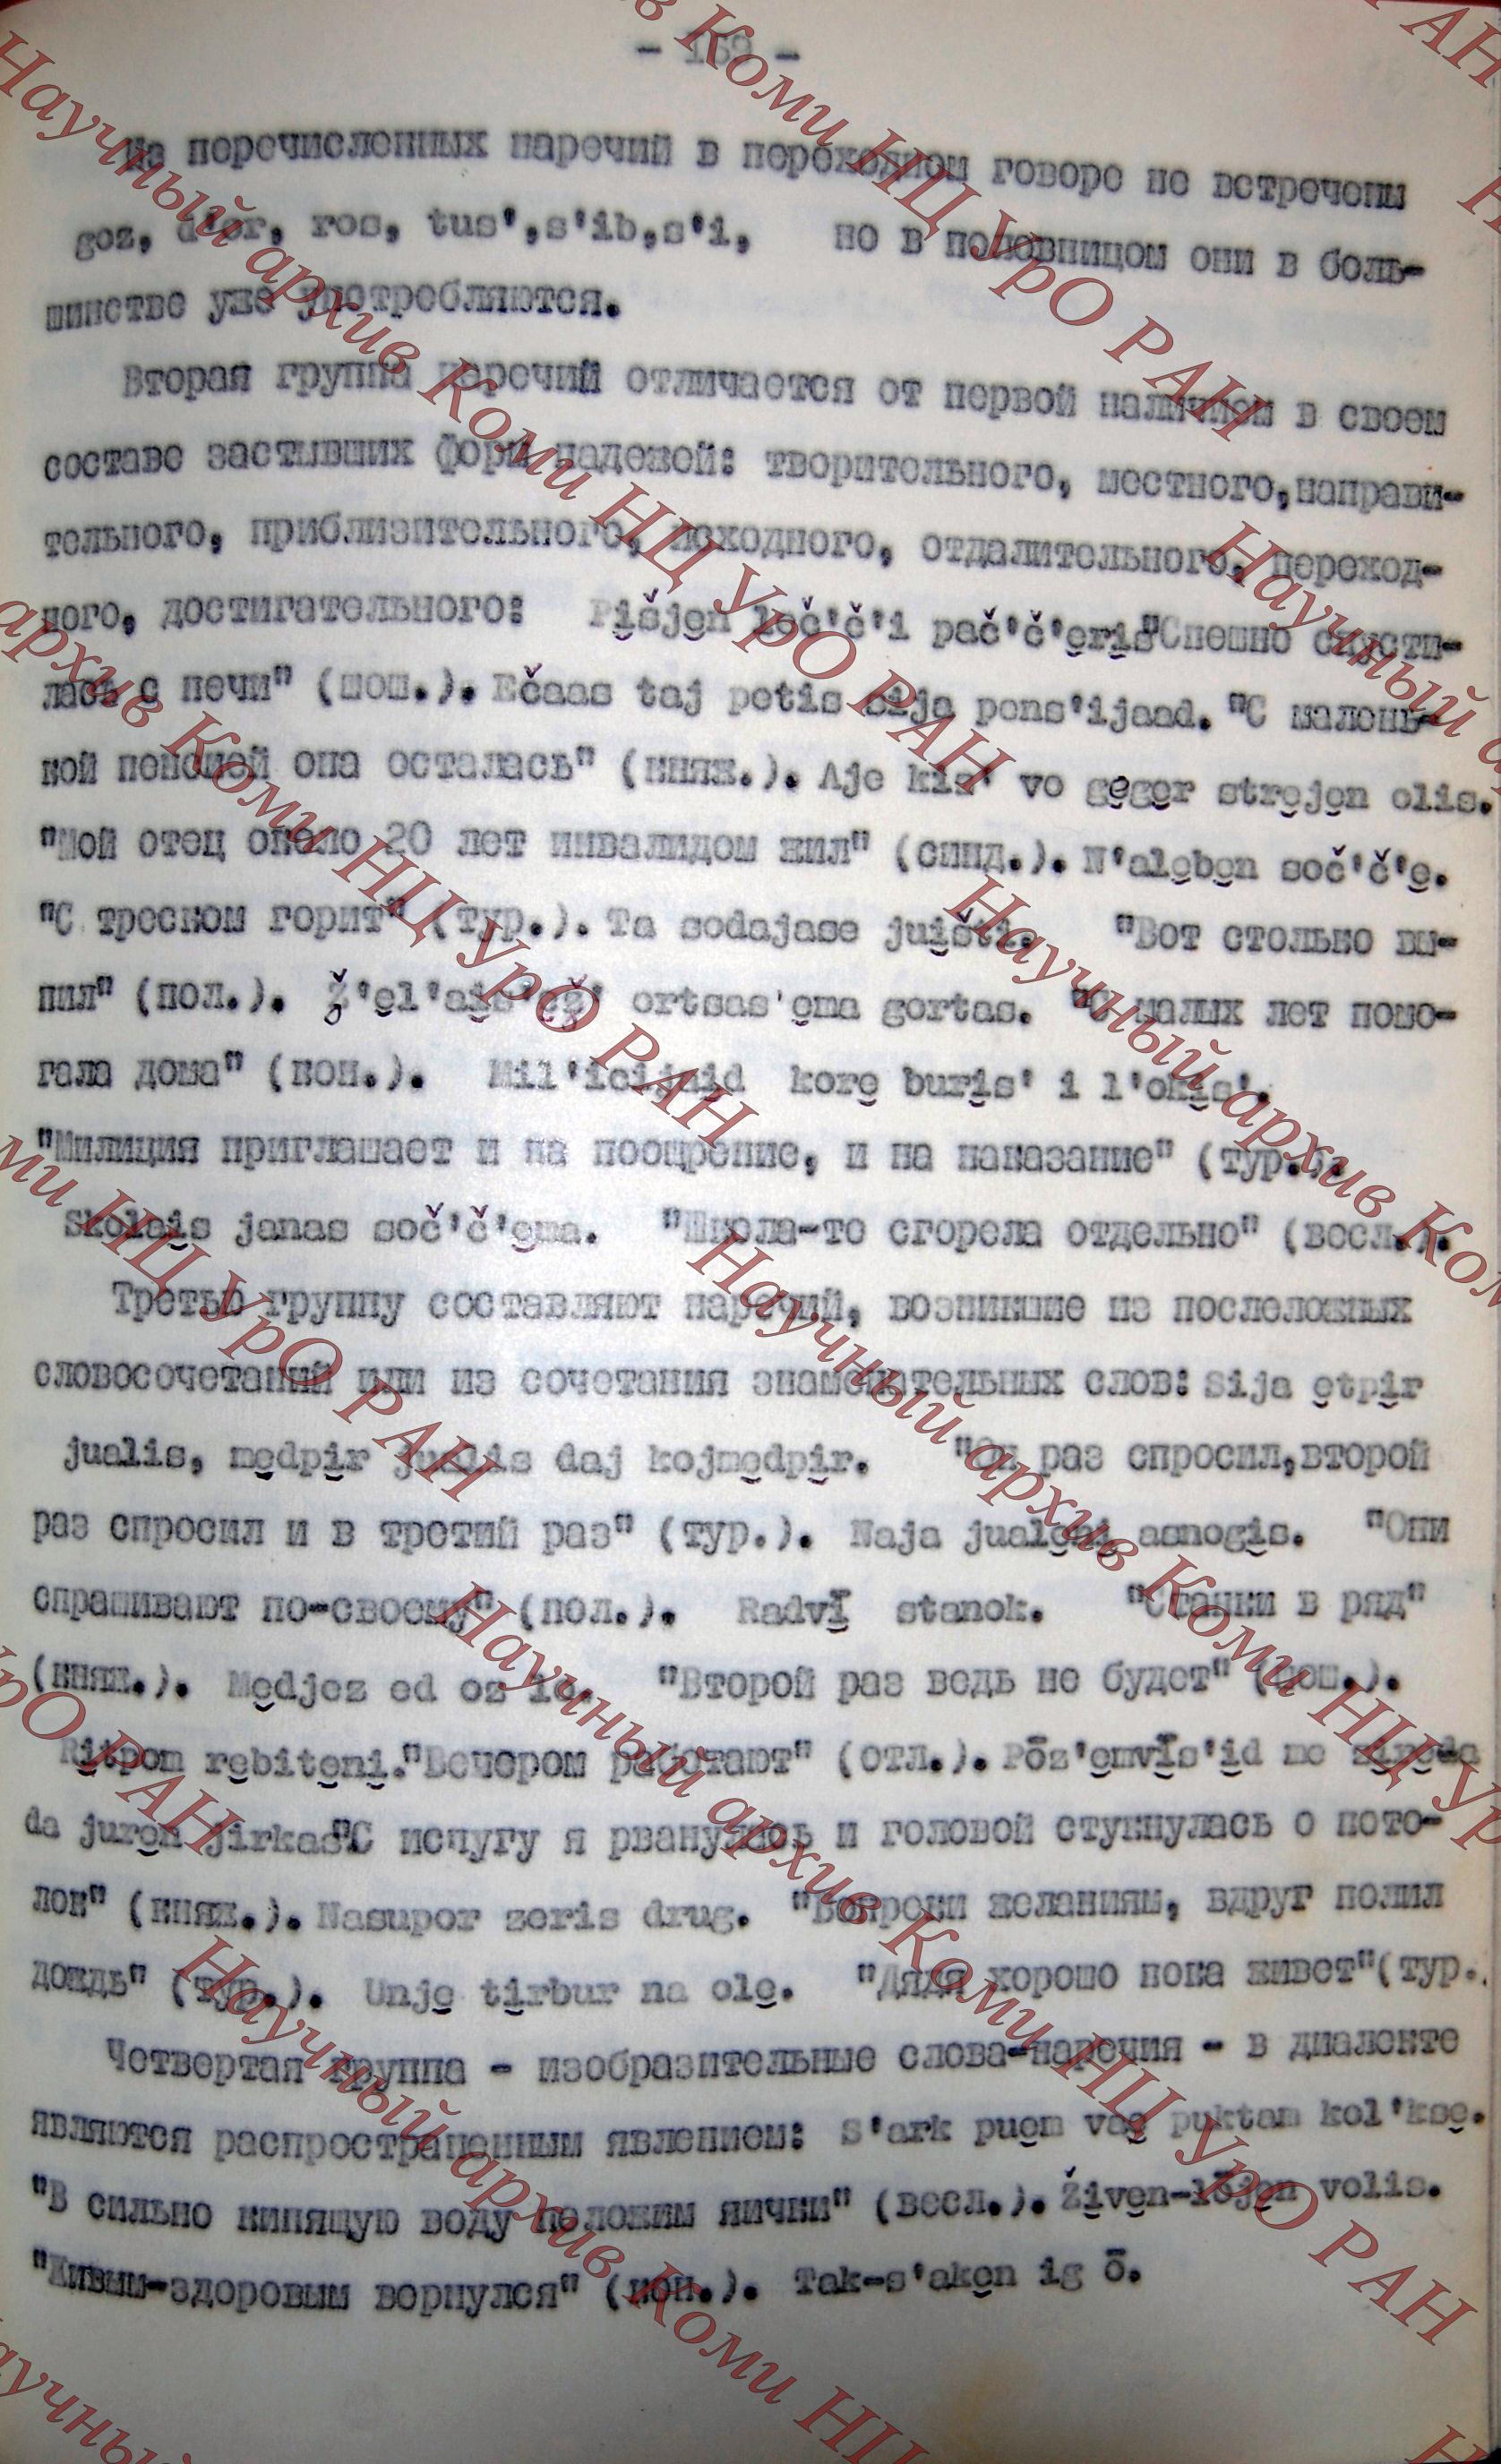 - 159 -
Из перечисленных наречий в переходном говоре не встречены
goz, d'er, ros, tus', s'ib, s'i, но в половницом они в боль-
шинстве уже употребляются.
Вторая группа наречий отличается от первой наличием в своем
составе застывших форм падежей: творительного, местного, направи-
тельного, приблизительного, исходного, отдалительного, переход-
ного, достигательного: Pi̮šje̮n leč'č'i pač'č'e̮ri̮s "Спешно спусти-
лась с печи" (пош.). Ečaas taj petis sija pens'ijaad. "С малень-
кой пенсией она осталась" (княж.). Aje kiz' vo ge̮ge̮r stre̮je̮n olis.
"Мой отец около 20 лет инвалидом жил" (синд.). N'ale̮be̮n soč'č'e̮.
"С треском горит" (тур.). Ta sodajase jui̮šti. "Вот столько вы-
пил" (пол.). ortsas'e̮ma gortas. "С малых лет помо-
гала дома" (кон.). Mil'icijaid kore̮ buri̮s' i l'oki̮s'.
"Милиция приглашает и на поощрение, и на наказание" (тур.).
Skolai̮s janas soč'č'e̮ma. "Школа-то сгорела отдельно" (весл.).
Третью группу составляют наречия, возникшие из послеложных
словосочетаний или из сочетания знаменательных слов: Sija e̮tpi̮r
jualis, me̮dpi̮r jualis daj kojme̮dpi̮r. "Он раз спросил, второй
раз спросил и в третий раз" (тур.). Naja juale̮ni̮ asnogi̮s. "Они
спрашивают по-своему" (пол.). Radvī̮ stanok. "Станки в ряд"
(княж.). Me̮djez ed oz lo. "Второй раз ведь не будет" (кош.).
Ri̮tpom re̮bite̮ni̮. "Вечером работают" (отл.). Pōz'e̮mvī̮s'i̮d me
da jure̮n jirkas "С испугу я рванулась и головой стукнулась о пото-
лок" (княж.). Nasupor zeris drug. "Вопреки желаниям, вдруг полил
дождь" (тур.). Unje̮ ti̮rbur na ole̮. "Дядя хорошо пока живет" (тур.
Четвертая группа - изобразительные слова-наречия - в диалекте
являются распространенным явлением: S'ark pue̮m vae̮ puktam kol'kse̮.
"В сильно кипящую воду положим яички" (весл.). Ži̮ve̮n-lōje̮n volis.
"Живым-здоровым вернулся" (кон.). Tak-s'ake̮n ig ō.
Научный архив Коми НЦ УрО РАН